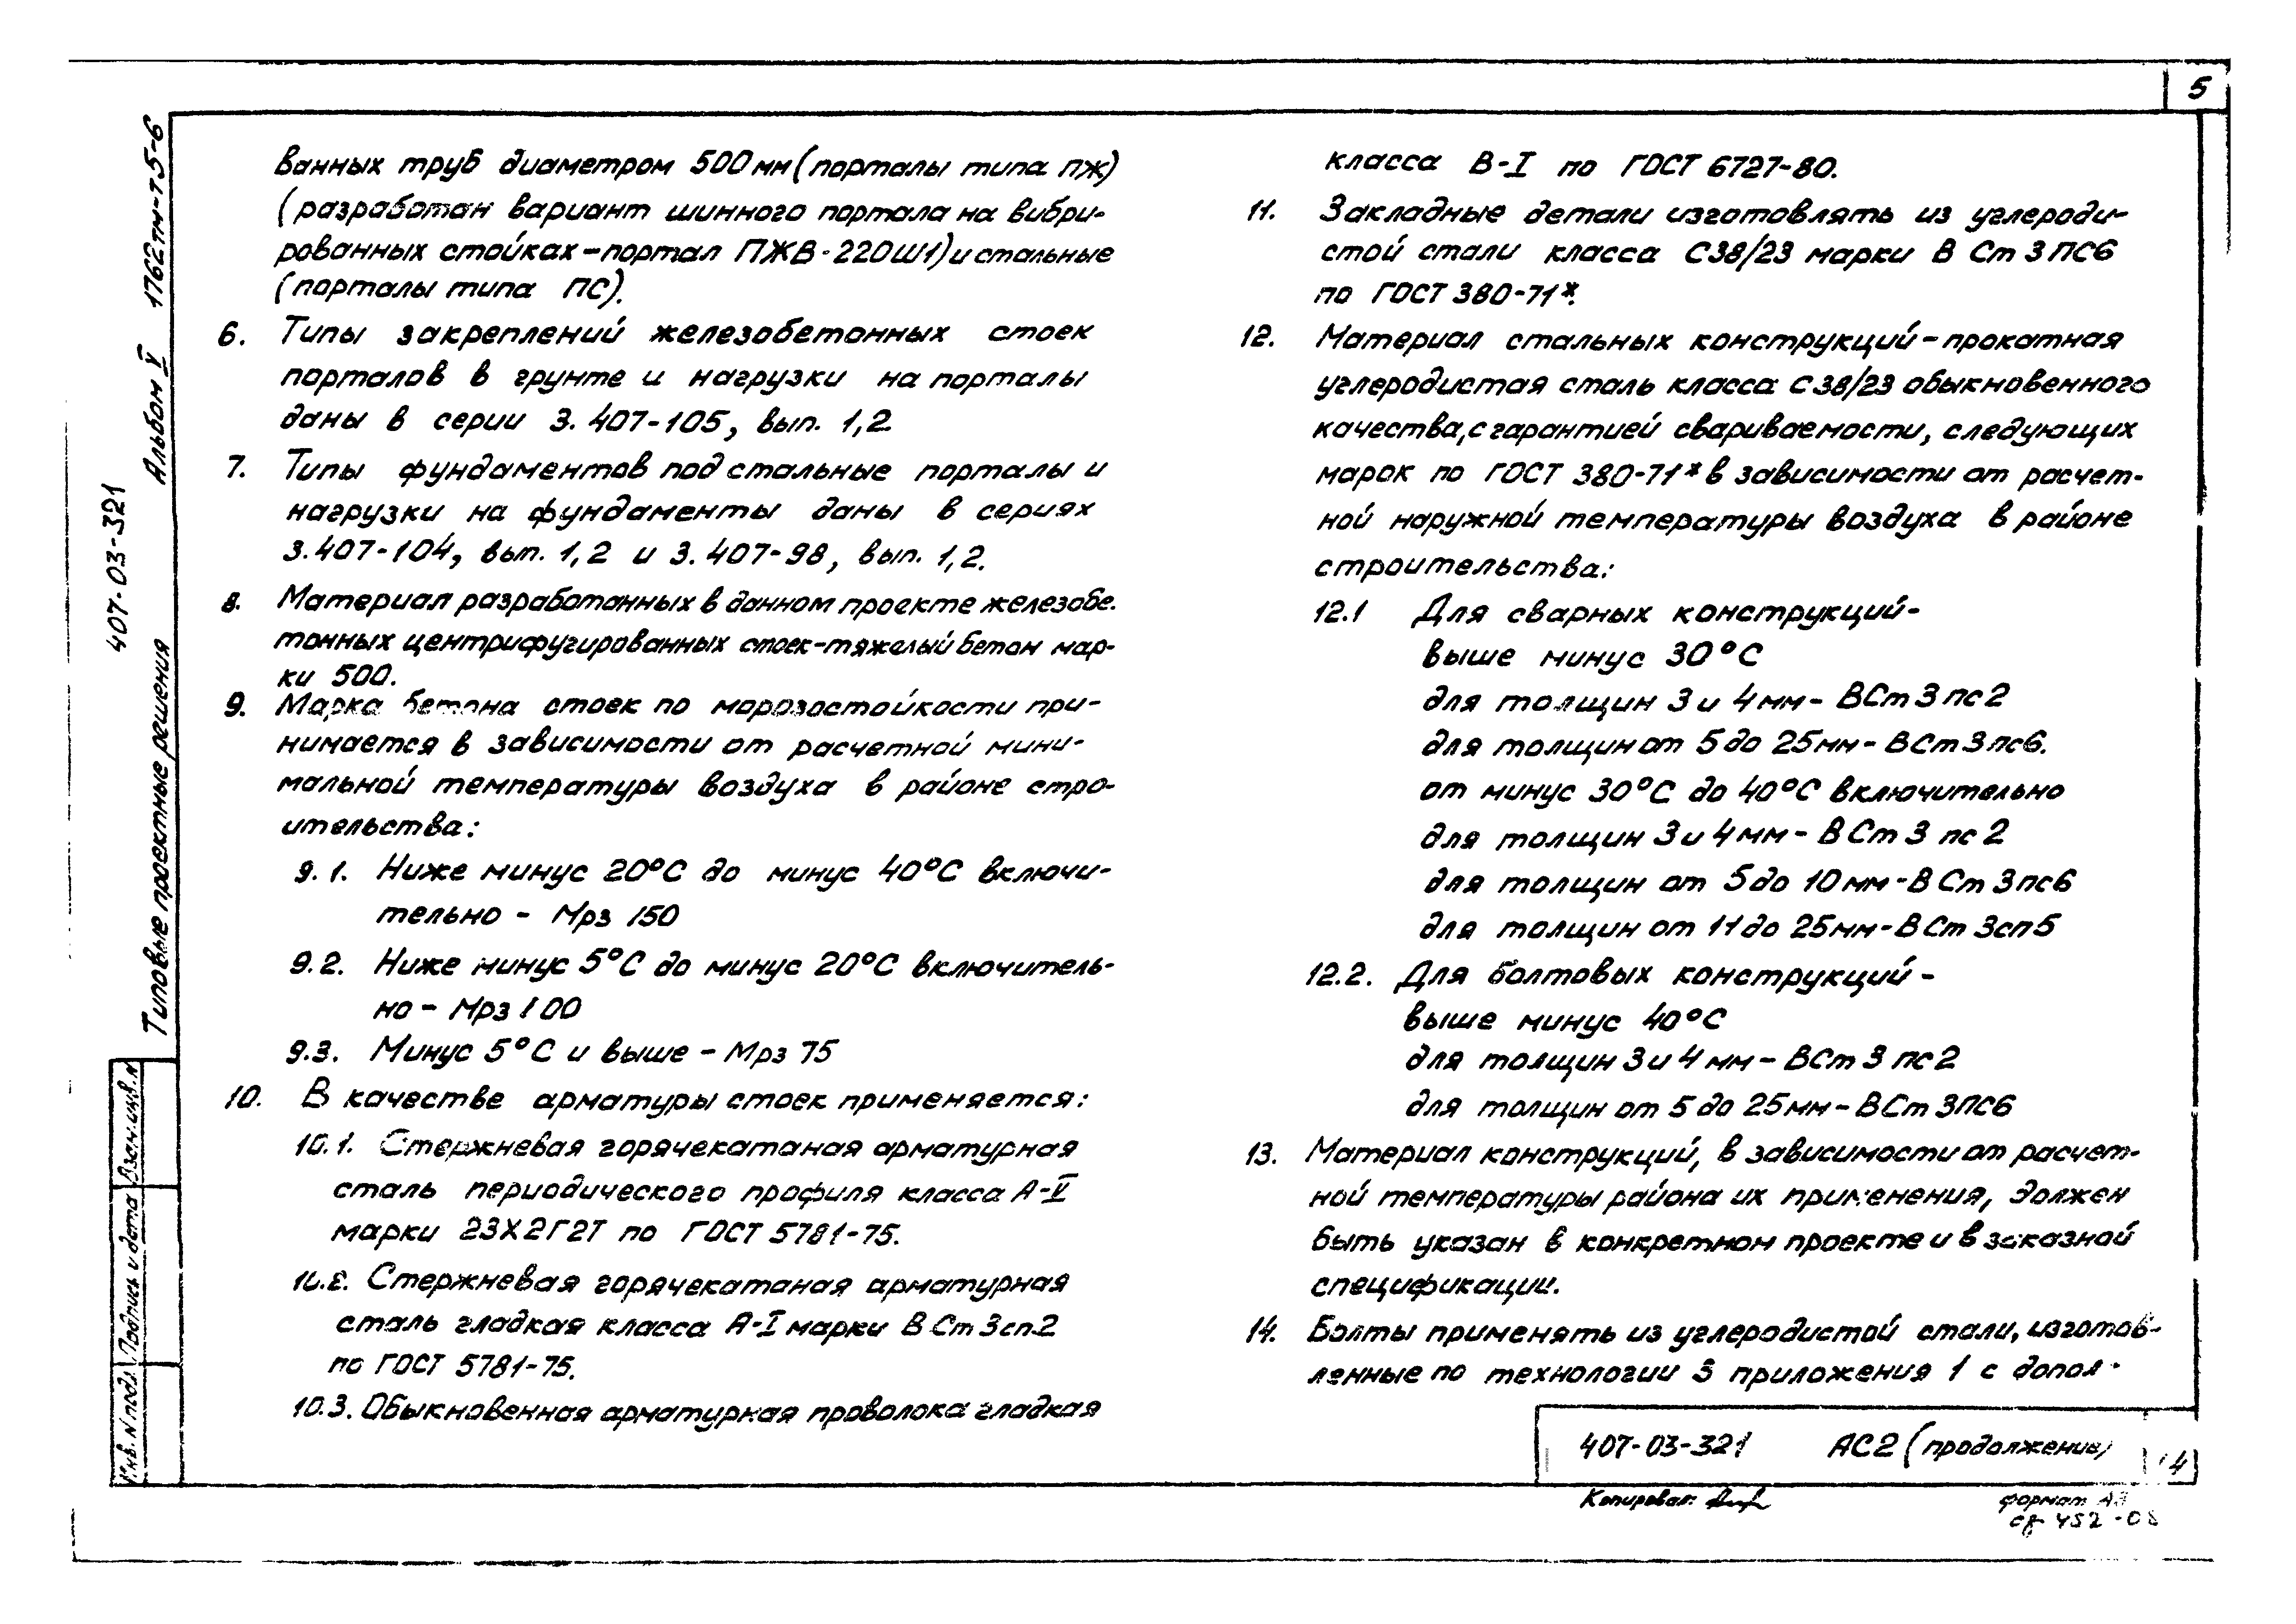 5
ванных труб диаметром 500 мм (порталы типа ПЖ)
(разработан вариант шинного портала на вибри-
рованных стойках – портал ПЖВ-220Ш1) и стальные
(порталы типа ПС).
6. Типы закреплений железобетонных стоек
порталов в грунте и нагрузки на порталы
даны в серии 3.407-105, вып. 1,2.
7. Типы фундаментов под стальные порталы и
нагрузки на фундаменты даны в сериях
3.407-104, вып. 1,2 и 3.407-98, вып. 1,2.
8. Материал разработанных в данном проекте железобе-
тонных центрифугированных стоек – тяжелый бетон мар-
ки 500.
9. Марка бетона стоек по морозостойкости при-
нимается в зависимости от расчетной мини-
мальной температуры воздуха в районе стро-
ительства:
9.1. Ниже минус 20°С до минус 40°С включи-
тельно – Мрз 150
9.2. Ниже минус 5°С до минус 20°С включитель-
но – Мрз 100
9.3. Минус 5°С и выше – Мрз 75
10. В качестве арматуры стоек применяется:
10.1. Стержневая горячекатаная арматурная
сталь периодического профиля класса А-V
марки 23Х2Г2Т по ГОСТ 5781-75.
10.2. Стержневая горячекатаная арматурная
сталь гладкая класса А-I марки ВСт3сп2
по ГОСТ 5781-75.
10.3. Обыкновенная арматурная проволока гладкая
класса В-I по ГОСТ 6727-80.
11. Закладные детали изготовлять из углероди-
стой стали класса С38/23 марки ВСт3ПС6
по ГОСТ 380-71*.
12. Материал стальных конструкций – прокатная
углеродистая сталь класса С38/23 обыкновенного
качества, с гарантией свариваемости, следующих
марок по ГОСТ 380-71* в зависимости от расчет-
ной наружной температуры воздуха в районе
строительства:
12.1 Для сварных конструкций –
выше минус 30°С
для толщин 3 и 4 мм – ВСт3пс2
для толщин от 5 до 25 мм – ВСт3пс6.
от минус 30°С до 40°С включительно
для толщин 3 и 4 мм – ВСт3пс2
для толщин от 5 до 10 мм – ВСт3пс6
для толщин от 11 до 25 мм – ВСт3сп5
12.2. Для болтовых конструкций –
выше минус 40°С
для толщин 3 и 4 мм – ВСт3пс2
для толщин от 5 до 25 мм – ВСт3ПС6
13. Материал конструкций, в зависимости от расчет-
ной температуры района их применения, должен
быть указан в конкретном проекте и в заказной
спецификации.
14. Болты применять из углеродистой стали, изготов-
ленные по технологии 3 приложения 1 с допол-
407-03-321 АС2 (продолжение) 4
Копировал:
формат А3
сф 452-08
407-03-321
Типовые проектные решения Альбом V 1762тм-т5-6
Инв. N подл. Подпись и дата Взам. инв. N